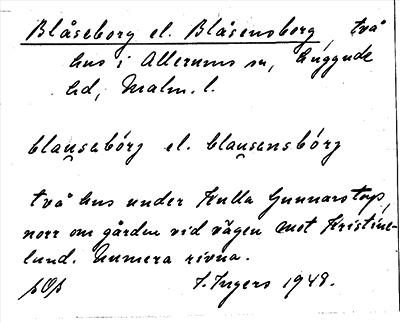 Blåseborg el. Blåsensborg, två
hus i Allerums sn, Luggude
hd, Malm. l.
blausabórg el. blausansbórg
två hus under Kulla Gunnarstorp,
norr om gården vid vägen mot Kristine-
lund. Numera rivna.
I. Ingers 1949.